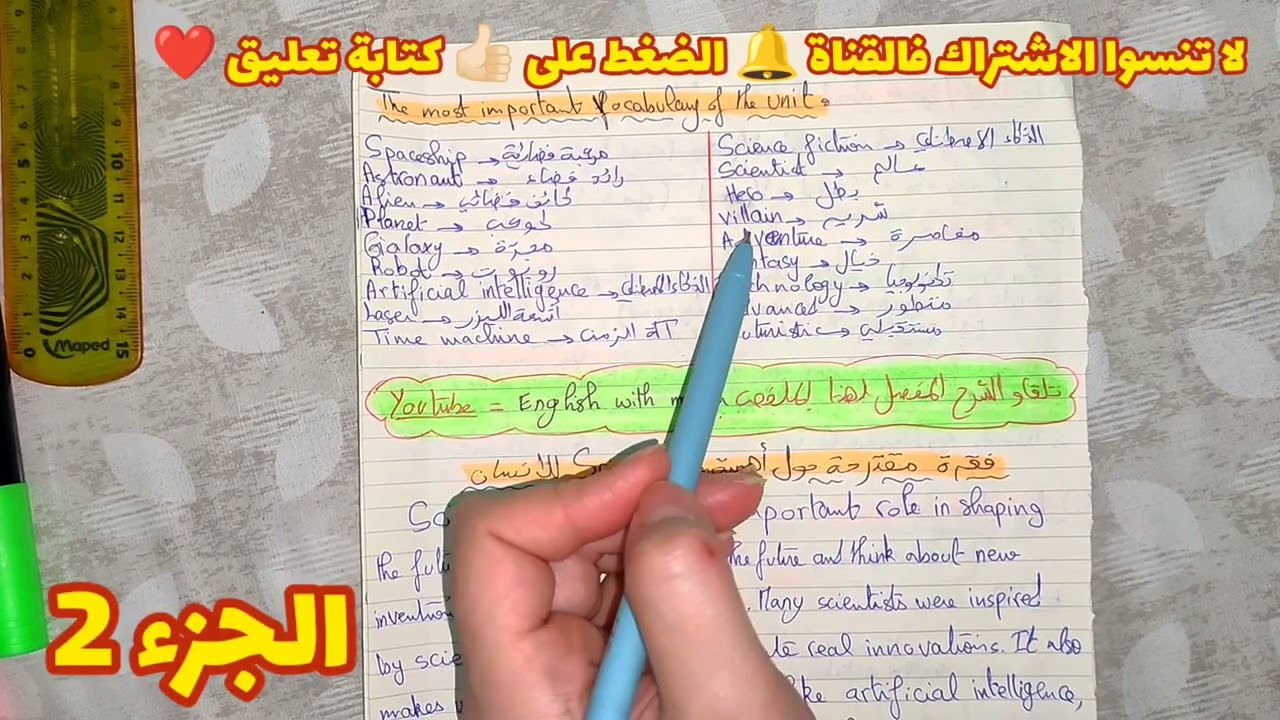 لا تنسوا الاشتراك فالقناة 🔔 الضغط على 👍🏻 كتابة تعليق ❤️
The most important Vocabulary of the unit.
Spaceship → مركبة فضائية
Astronaut → رائد فضاء
Alien → كائن فضائي
Planet → كوكب
Galaxy → مجرّة
Robot → روبوت
Artificial intelligence → الذكاء الاصطناعي
Laser → أشعة الليزر
Time machine → آلة الزمن
Science fiction → الذكاء الاصطناعي
Scientist → عالم
Hero → بطل
Villain → شرير
مغامرة
خيال
تكنولوجيا
متطور
مستقبلي
Youtube = English with
تلقاو الشرح المفصل لهذا الملخص
فقرة مقترحة حول
للإنسان
role in shaping
the future and think about new
Many scientists were inspired
by
real innovations. It also
makes
artificial intelligence,
الجزء 2
Maped
0 1 2 3 15
11 10 9 8 7 6